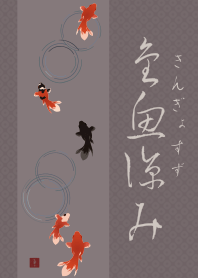 金魚涼み
きんぎょすず